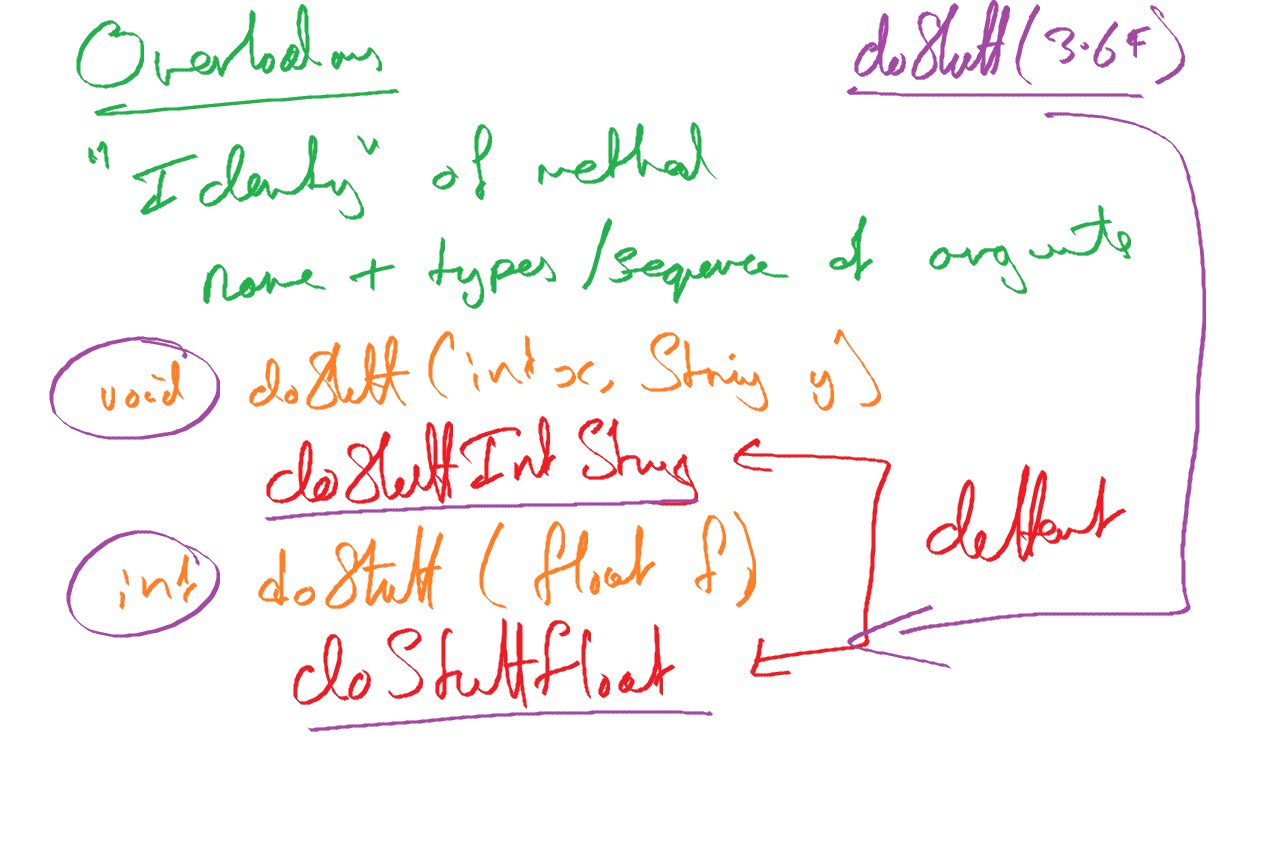 Overloading
doStuff(3.6F)
"Identity" of method
name + types/sequence of arguments
void doStuff(int x, String y)
doStuffIntString
different
int doStuff (float f)
doStuffFloat